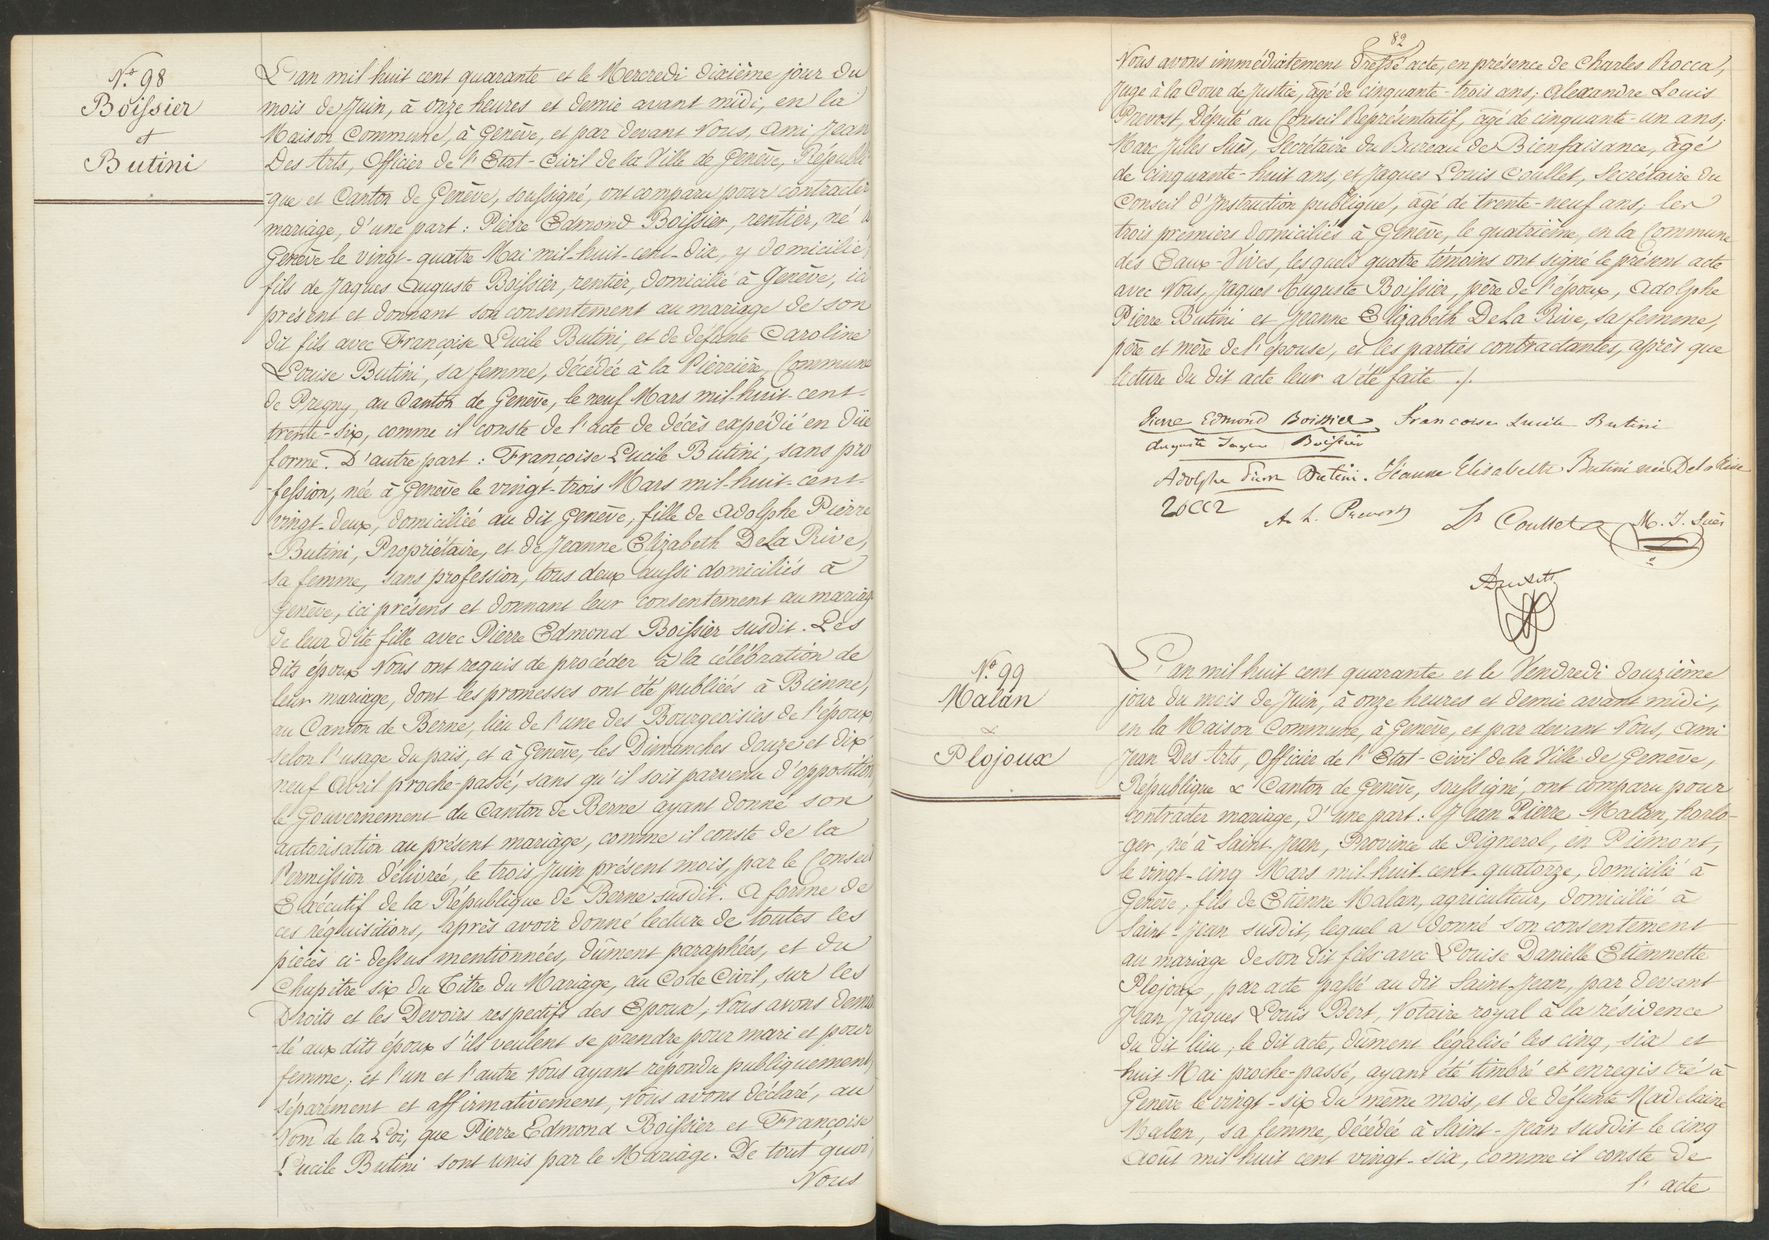 N.º 98
Boissier
et
Butini
L'an mil huit cent quarante et le Mercredi dixième jour du
mois de Juin, à onze heures et demie avant midi, en la
Maison Commune, à Genève, et par devant Nous, Ami Jean
Des Arts, Officier de l'Etat-Civil de la Ville de Genève, Républi-
-que et Canton de Genève, soussigné, ont comparu pour contracter
mariage, d'une part: Pierre Edmond Boissier, rentier, né à
Genève le vingt-quatre Mai mil-huit-cent-dix, y domicilié,
fils de Jaques Auguste Boissier, rentier, domicilié à Genève, ici
présent et donnant son consentement au mariage de son
dit fils avec Françoise Lucile Butini, et de défunte Caroline
Louise Butini, sa femme, décédée à la Pierrière, Commune
de Pregny, au Canton de Genève, le neuf Mars mil-huit-cent-
trente-six, comme il conste de l'acte de décès expédié en düe
forme. D'autre part: Françoise Lucile Butini, sans pro
-fession, née à Genève le vingt-trois Mars mil-huit-cent-
vingt-deux, domiciliée au dit Genève, fille de Adolphe Pierre
Butini, Propriétaire, et de Jeanne Elizabeth De La Rive,
sa femme, sans profession, tous deux aussi domiciliés à
Genève, ici présens et donnant leur consentement au mariage
de leur dite fille avec Pierre Edmond Boissier susdit. Les
dits époux Nous ont requis de procéder à la célébration de
leur mariage, dont les promesses ont été publiées à Bienne,
au Canton de Berne, lieu de l'une des Bourgeoisies de l'époux,
selon l'usage du païs, et à Genève, les Dimanches douze et dix
neuf Avril proche-passé, sans qu'il soit parvenu d'opposition,
le Gouvernement du Canton de Berne ayant donné son
autorisation au présent mariage, comme il conste de la
Permission délivrée, le trois Juin présent mois, par le Conseil
Exécutif de la République de Berne susdit. A forme de
ces réquisitions, après avoir donné lecture de toutes les
pièces ci-dessus mentionnées, dûment paraphées, et du
Chapitre six du Titre du Mariage, au Code Civil, sur les
Droits et les Devoirs respectifs des Epoux, Nous avons deman
-dé aux dits époux s'ils veulent se prendre pour mari et pour
femme; et l'un et l'autre Nous ayant répondu publiquement,
séparément et affirmativement, Nous avons déclaré, au
Nom de la Loi, que Pierre Edmond Boissier et Françoise
Lucile Butini sont unis par le Mariage. De tout quoi,
Nous
82
Nous avons immédiatement dressé acte, en présence de Charles Rocca,
Juge à la Cour de Justice, âgé de cinquante-trois ans; Alexandre Louis
Prevost, Député au Conseil Représentatif, âgé de cinquante-un ans;
Marc Jules Suès, Secrétaire du Bureau de Bienfaisance, âgé
de cinquante-huit ans, et Jaques Louis Coullet, Secrétaire du
Conseil d'Instruction publique, âgé de trente-neuf ans; les
trois premiers domiciliés à Genève, le quatrième, en la Commune
des Eaux-Vives, lesquels quatre témoins ont signé le présent acte
avec Nous, Jaques Auguste Boissier, père de l'époux, Adolphe
Pierre Butini et Jeanne Elizabeth De La Rive, sa femme,
père et mère de l'épouse, et les parties contractantes, après que
lecture du dit acte leur a été faite ./.
Pierre Edmond Boissier Francoise Lucile Butini
Auguste Jaques Boissier
Adolphe Pierre Butini. Jeanne Elisabeth Butini née De la Rive
Rocca A. L. Prevost Ls Coullet M. J. Suès
N.º 99
Malan
&
Plojoux
L'an mil huit cent quarante et le Vendredi douzième
jour du mois de Juin, à onze heures et demie avant midi,
en la Maison Commune, à Genève, et par devant Nous, Ami
Jean Des Arts, Officier de l'Etat-Civil de la Ville de Genève,
République & Canton de Genève, soussigné, ont comparu pour
contracter mariage, d'une part: Jean Pierre Malan, horlo-
-ger, né à Saint-Jean, Province de Pignerol, en Piémont,
le vingt-cinq Mars mil-huit-cent-quatorze, domicilié à
Genève, fils de Etienne Malan, agriculteur, domicilié à
Saint-Jean susdit, lequel a donné son consentement
au mariage de son dit fils avec Louise Danielle Etiennette
Plojoux, par acte passé au dit Saint-Jean, par devant
Jean Jaques Louis Bert, Notaire royal à la résidence
du dit lieu, le dit acte, dûment légalisé les cinq, six et
huit Mai proche-passé, ayant été timbré et enregistré à
Genève le vingt-six du même mois, et de défunte Madelaine
Malan, sa femme, décédée à Saint-Jean susdit le cinq
Août mil huit cent vingt-six, comme il conste de
l'acte